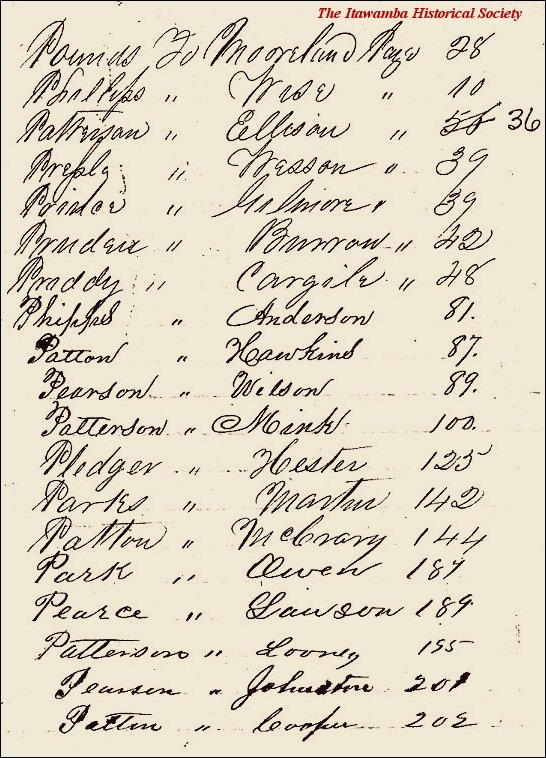 The Itawamba Historical Society
Pounds To Mooreland Page 28
Phillips " Wise " 10
Patterson " Ellison " 36
Presly " Wesson " 39
Prince " Gilmore " 39
Pruden " Burrow " 42
Priddy " Cargile " 48
Phipps " Anderson 81.
Patton " Hawkins 87.
Pearson " Wilson 89.
Patterson " Mink 100.
Pledger " Hester 125
Parks " Martin 142
Patton " McCrary 144
Park " Owen 187
Pearce " Lawson 189
Patterson " Looney 195
Pearson " Johnston 201
Patton " Cooper 202